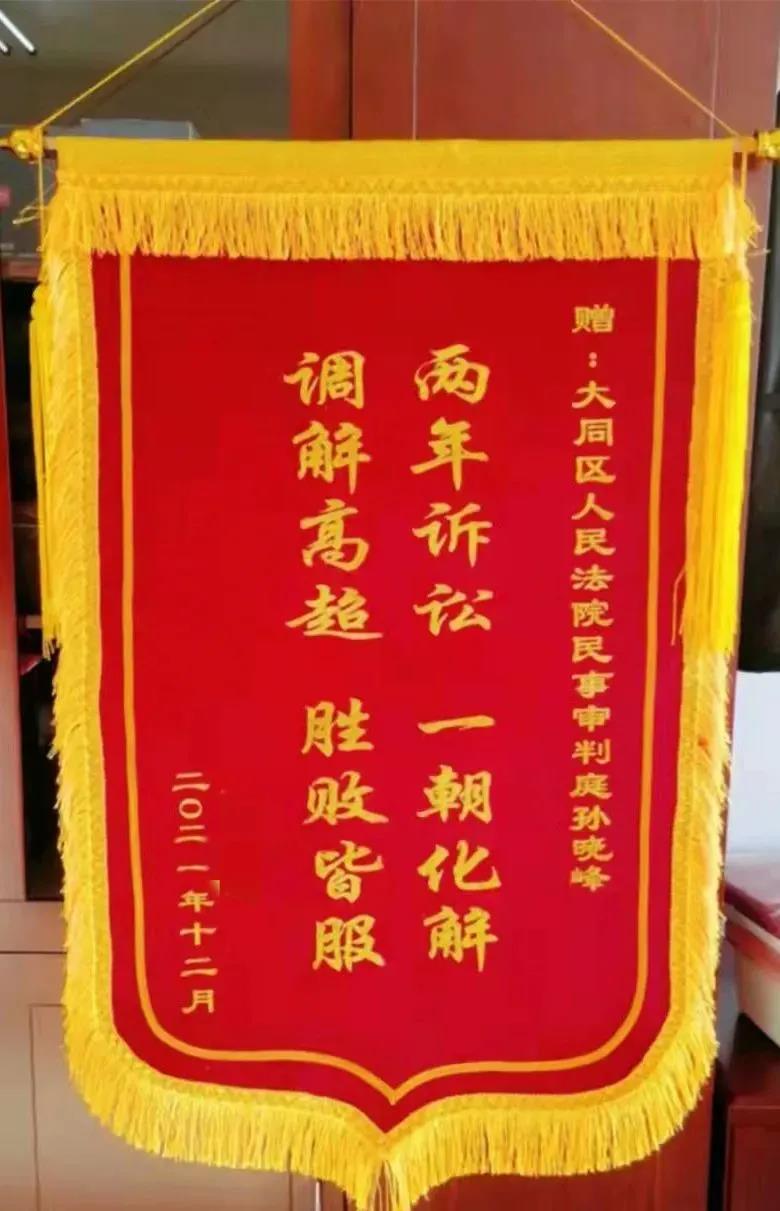 赠：大同区人民法院民事审判庭孙晓峰
两年诉讼 一朝化解
调解高超 胜败皆服
二〇二一年十二月